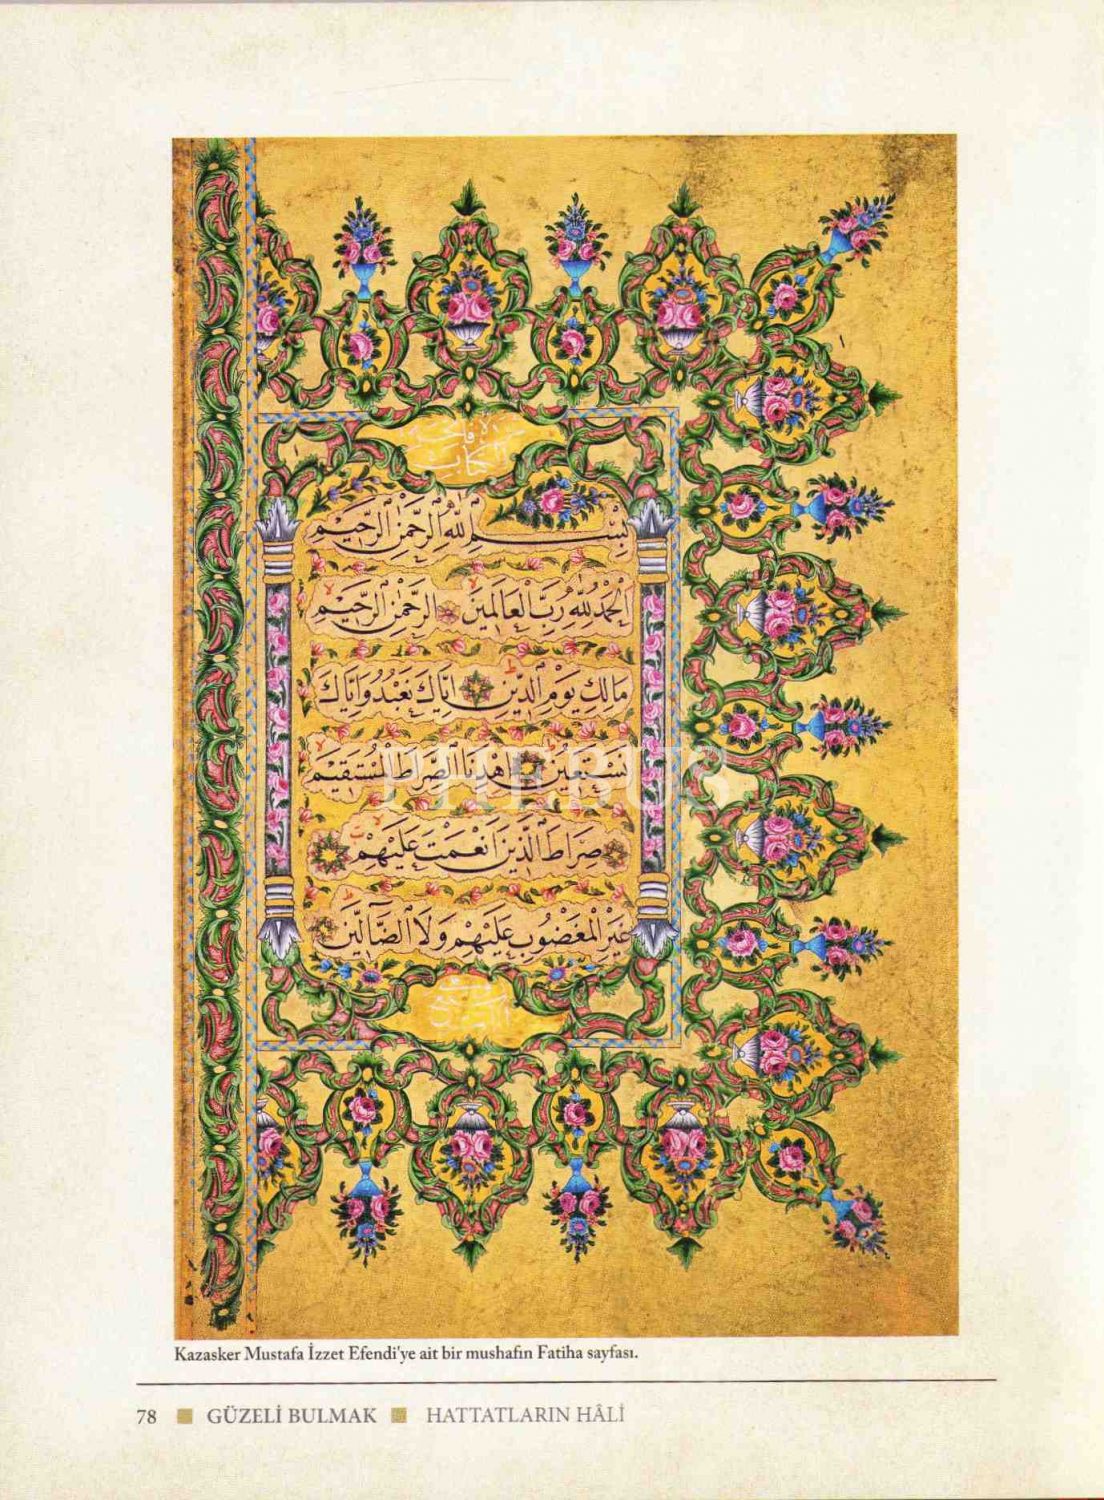 بِسْمِ اللّٰهِ الرَّحْمٰنِ الرَّحِيْمِ
اَلْحَمْدُ لِلّٰهِ رَبِّ الْعَالَمِينَ الرَّحْمٰنِ الرَّحِيْمِ
مَالِكِ يَوْمِ الدِّينِ اِيَّاكَ نَعْبُدُ وَاِيَّاكَ
نَسْتَعِينُ اِهْدِنَا الصِّرَاطَ الْمُسْتَقِيْمَ
صِرَاطَ الَّذِينَ اَنْعَمْتَ عَلَيْهِمْ
غَيْرِ الْمَغْضُوبِ عَلَيْهِمْ وَلَا الضَّالِّينَ
PHEBUS
Kazasker Mustafa İzzet Efendi'ye ait bir mushafın Fatiha sayfası.
78 GÜZELİ BULMAK HATTATLARIN HÂLİ